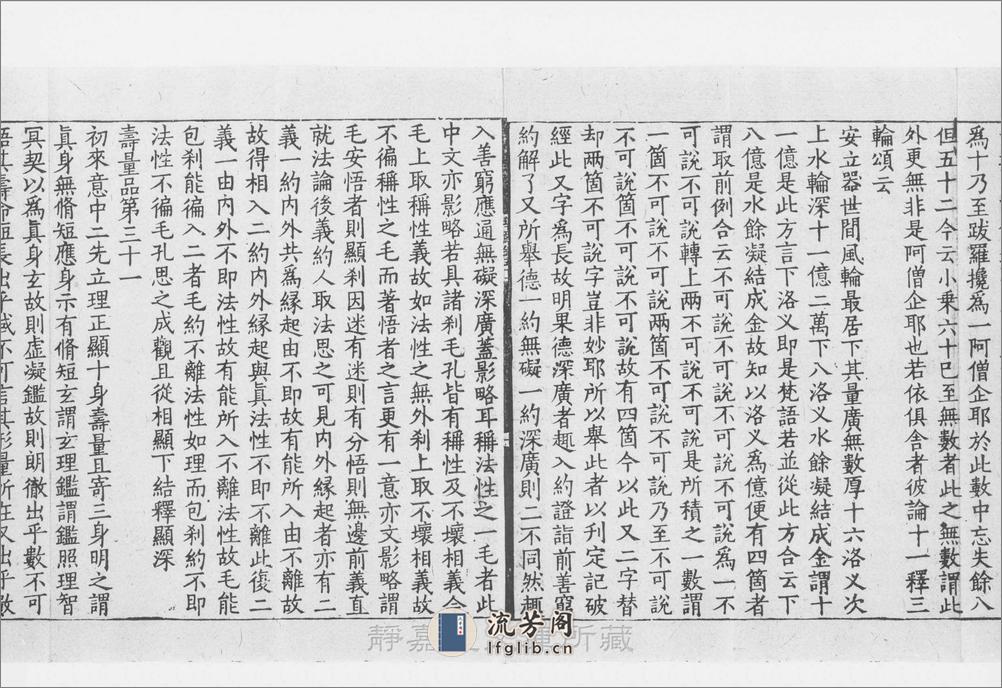 為十乃至跋羅攙為一阿僧企耶於此數中忘失餘八
但五十二今云小乗六十巳至無數者此之無數謂此
外更無非是阿僧企耶也若依俱舍者彼論十一釋三
輪頌云
安立器世間風輪最居下其量廣無數厚十六洛义次
上水輪深十一億二萬下八洛义水餘凝結成金謂十
一億是此方言下洛义即是梵語若並從此方合云下
八億是水餘凝結成金故知以洛义為億便有四箇者
謂取前例合云不可說不可說不可說不可說為一不
可說不可說轉上兩不可說不可說是所積之一數謂
一箇不可說不可說兩箇不可說不可說乃至不可說
不可說箇不可說不可說故有四箇今以此又二字替
却兩箇不可說字豈非妙耶所以舉此者以刊定記破
經此又字為長故明果德深廣者趣入約證詣前善窮
約解了又所舉德一約無礙一約深廣則二不同然趣
入善窮應通無礙深廣蓋影略耳稱法性之一毛者此
中文亦影略若具諸刹毛孔皆有稱性及不壞相義今
毛上取稱性義故如法性之無外刹上取不壞相義故
不徧稱性之毛而著悟者之言更有一意亦文影略謂
毛安悟者則顯刹因迷有迷則有分悟則無邊前義直
就法論後義約人取法思之可見内外縁起者亦有二
義一約内外共為縁起由不即故有能所入由不離故
故得相入二約内外縁起與真法性不即不離此復二
義一由内外不即法性故有能所入不離法性故毛能
包刹能徧入二者毛約不離法性如理而包刹約不即
法性不徧毛孔思之成觀且從相顯下結釋顯深
壽量品第三十一
初來意中二先立理正顯十身壽量且寄三身明之謂
真身無脩短應身示有脩短玄謂玄理鑑謂鑑照理智
冥契以為真身玄故則虛凝鑑故則朗徹出乎數不可
語其壽命短長出乎域不可言其形量所在又出乎數
静嘉 所藏
流芳阁
lfglib.cn